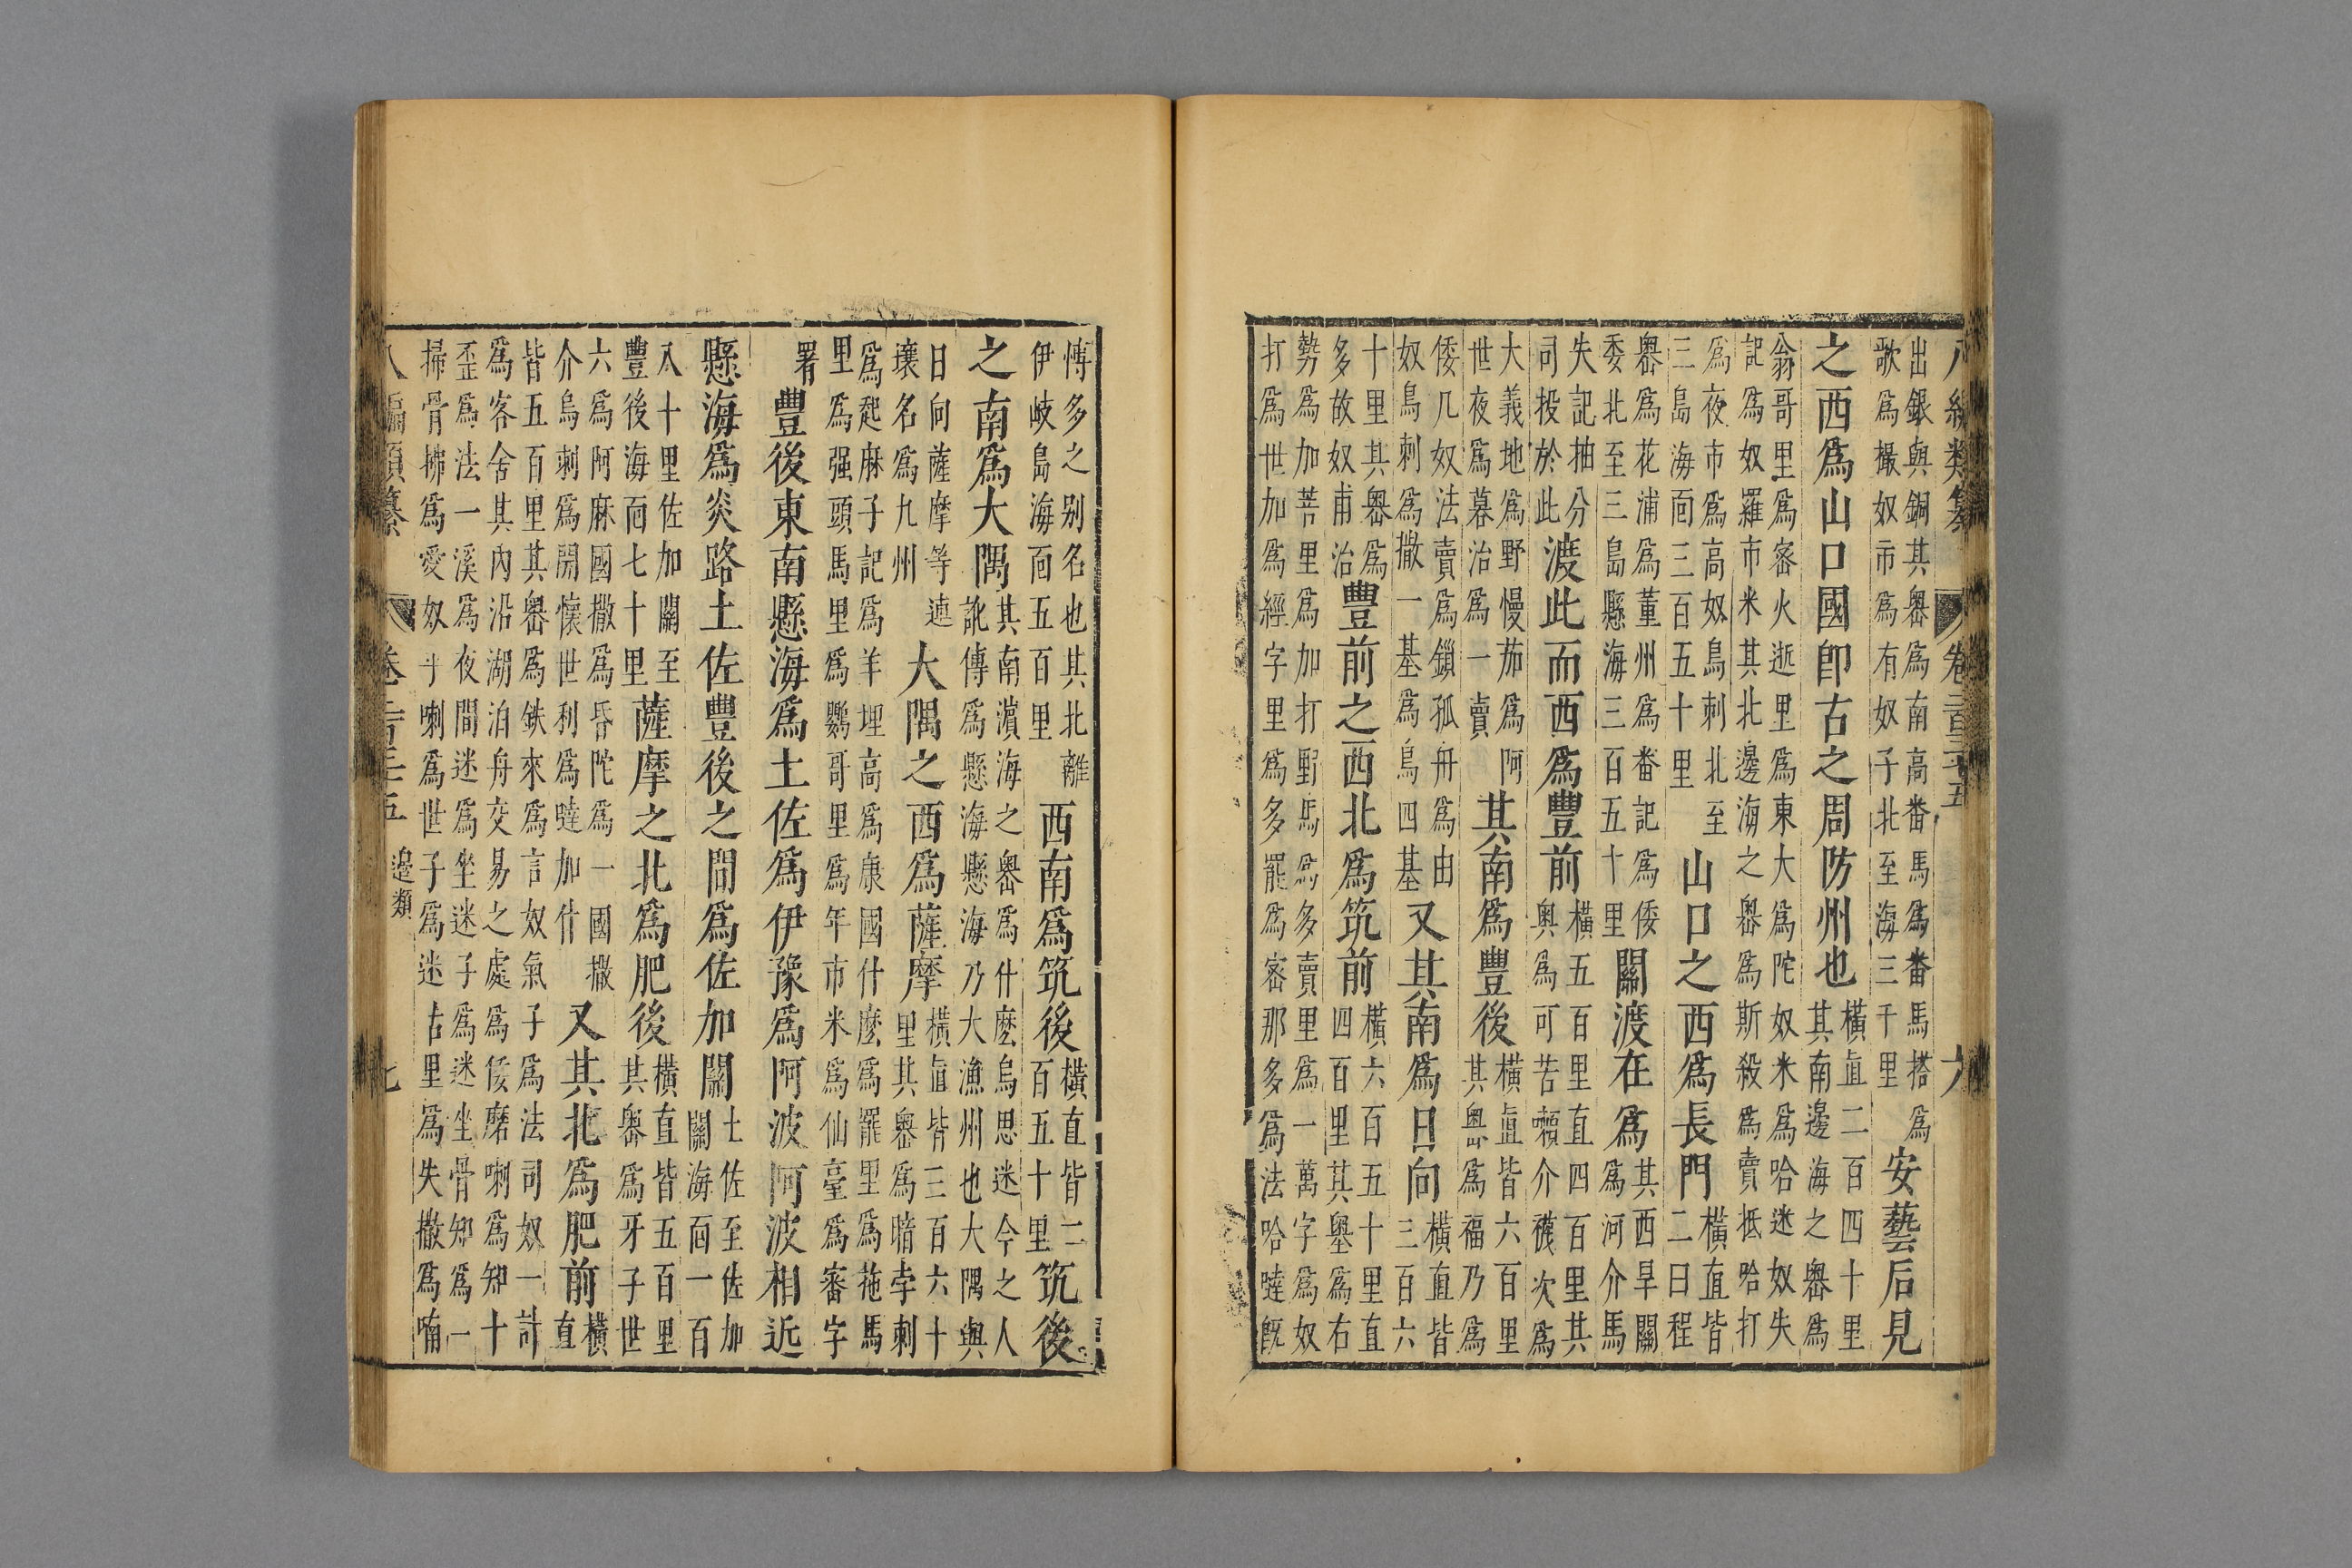 八編類纂 卷二百三十五 六
出銀與銅其嶴爲南高番馬爲番馬搭爲
歌爲撮奴市爲有奴子北至海三千里
安藝后見
之西爲山口國卽古之周防州也
橫直二百四十里
其南邊海之嶴爲
翁哥里爲密火逝里爲東大爲陀奴米爲哈迷奴失
記爲奴羅市米其北邊海之嶴爲斯殺爲賣抵哈打
爲夜市爲高奴鳥刺北至
三島海面三百五十里
山口之西爲長門
橫直皆
二日程
嶴爲花浦爲董州爲番記爲倭
委北至三島懸海三百五十里
關渡在爲
其西旱關
爲河介馬
失記抽分
司投於此
渡此而西爲豐前
橫五百里直四百里其
奧爲可苦嘪介穖次爲
大義地爲野慢茄爲阿
世夜爲暮治爲一賣
其南爲豐後
橫直皆六百里
其嶴爲福乃爲
倭几奴法賣爲鎻孤舟爲由
奴鳥刺爲撒一基爲鳥四基
又其南爲日向
橫直皆
三百六
十里其嶴爲
多故奴甫治
豐前之西北爲筑前
橫六百五十里直
四百里其嶴爲右
勢爲加菩里爲加打野馬爲多賣里爲一萬字爲奴
打爲世加爲經字里爲多罷爲密那多爲法哈噠旣
愽多之别名也其北離
伊岐島海面五百里
西南爲筑後
橫直皆二
百五十里
筑後
之南爲大隅
其南濵海之嶴爲什麽烏思迷今之人
訛傳爲懸海懸海乃大漁州也大隅與
日向薩摩等連
壤名爲九州
大隅之西爲薩摩
橫直皆三百六十
里其嶴爲暗孛刺
爲起麻子記爲羊埋高爲康國什麽爲罷里爲拖馬
里爲强頭馬里爲鸚哥里爲年市米爲仙臺爲審字
署
豐後東南懸海爲土佐爲伊豫爲阿波阿波相近
懸海爲炎路土佐豐後之間爲佐加關
土佐至佐加
關海面一百
八十里佐加關至
豐後海面七十里
薩摩之北爲肥後
橫直皆五百里
其嶴爲牙子世
六爲阿麻國撒爲昏陀爲一國撒
介烏刺爲開懷世利爲噠加什
又其北爲肥前
橫
直
皆五百里其嶴爲鉄來爲言奴氣子爲法司奴一計
爲客舍其內沿湖泊舟交易之處爲倭磨喇爲知十
歪爲法一溪爲夜間迷爲坐迷子爲迷坐骨知爲一
掃骨拂爲愛奴斗喇爲世子爲迷古里爲失撒爲喃
八編類纂 卷二百三十五 邊類 七